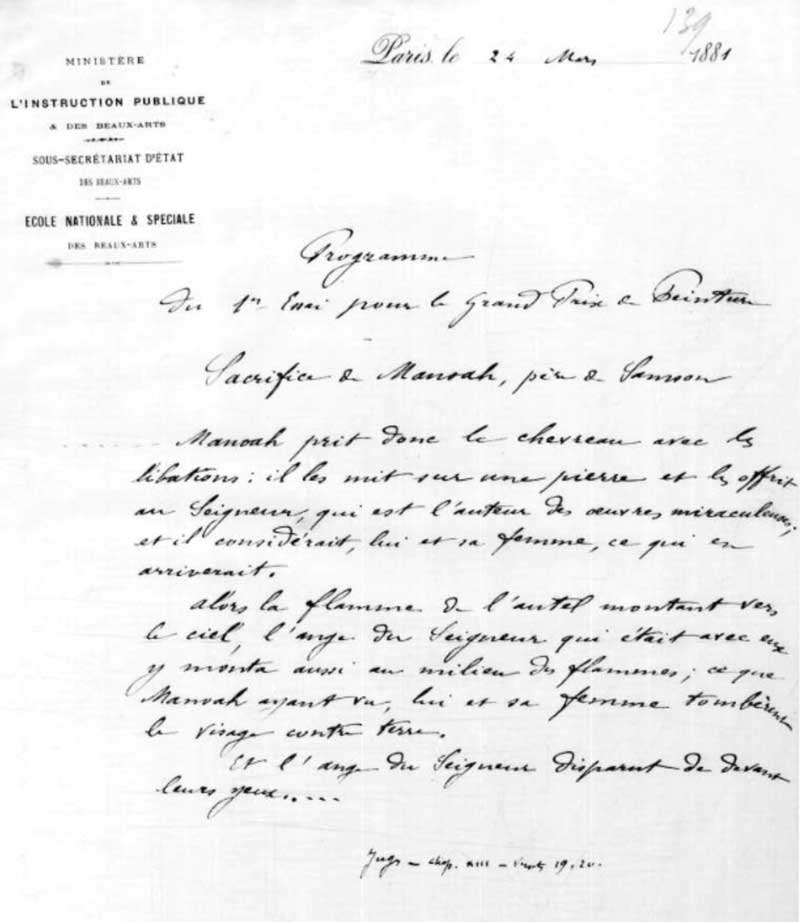 139
Paris, le 24 Mars 1881
MINISTÈRE
DE
L'INSTRUCTION PUBLIQUE
& DES BEAUX-ARTS
SOUS-SECRÉTARIAT D'ÉTAT
DES BEAUX-ARTS
ECOLE NATIONALE & SPECIALE
DES BEAUX-ARTS
Programme
du 1er Essai pour le Grand Prix de Peinture
Sacrifice de Manoah, père de Samson
Manoah prit donc le chevreau avec les
libations: il les mit sur une pierre et les offrit
au Seigneur, qui est l'auteur des œuvres miraculeuses;
et il considérait, lui et sa femme, ce qui en
arriverait.
alors la flamme de l'autel montant vers
le ciel, l'ange du Seigneur qui était avec eux
y monta aussi au milieu des flammes; ce que
Manoah ayant vu, lui et sa femme tombèrent
le visage contre terre.
Et l'ange du Seigneur disparut de devant
leurs yeux.....
Jug. - chap. XIII - versts 19, 20.